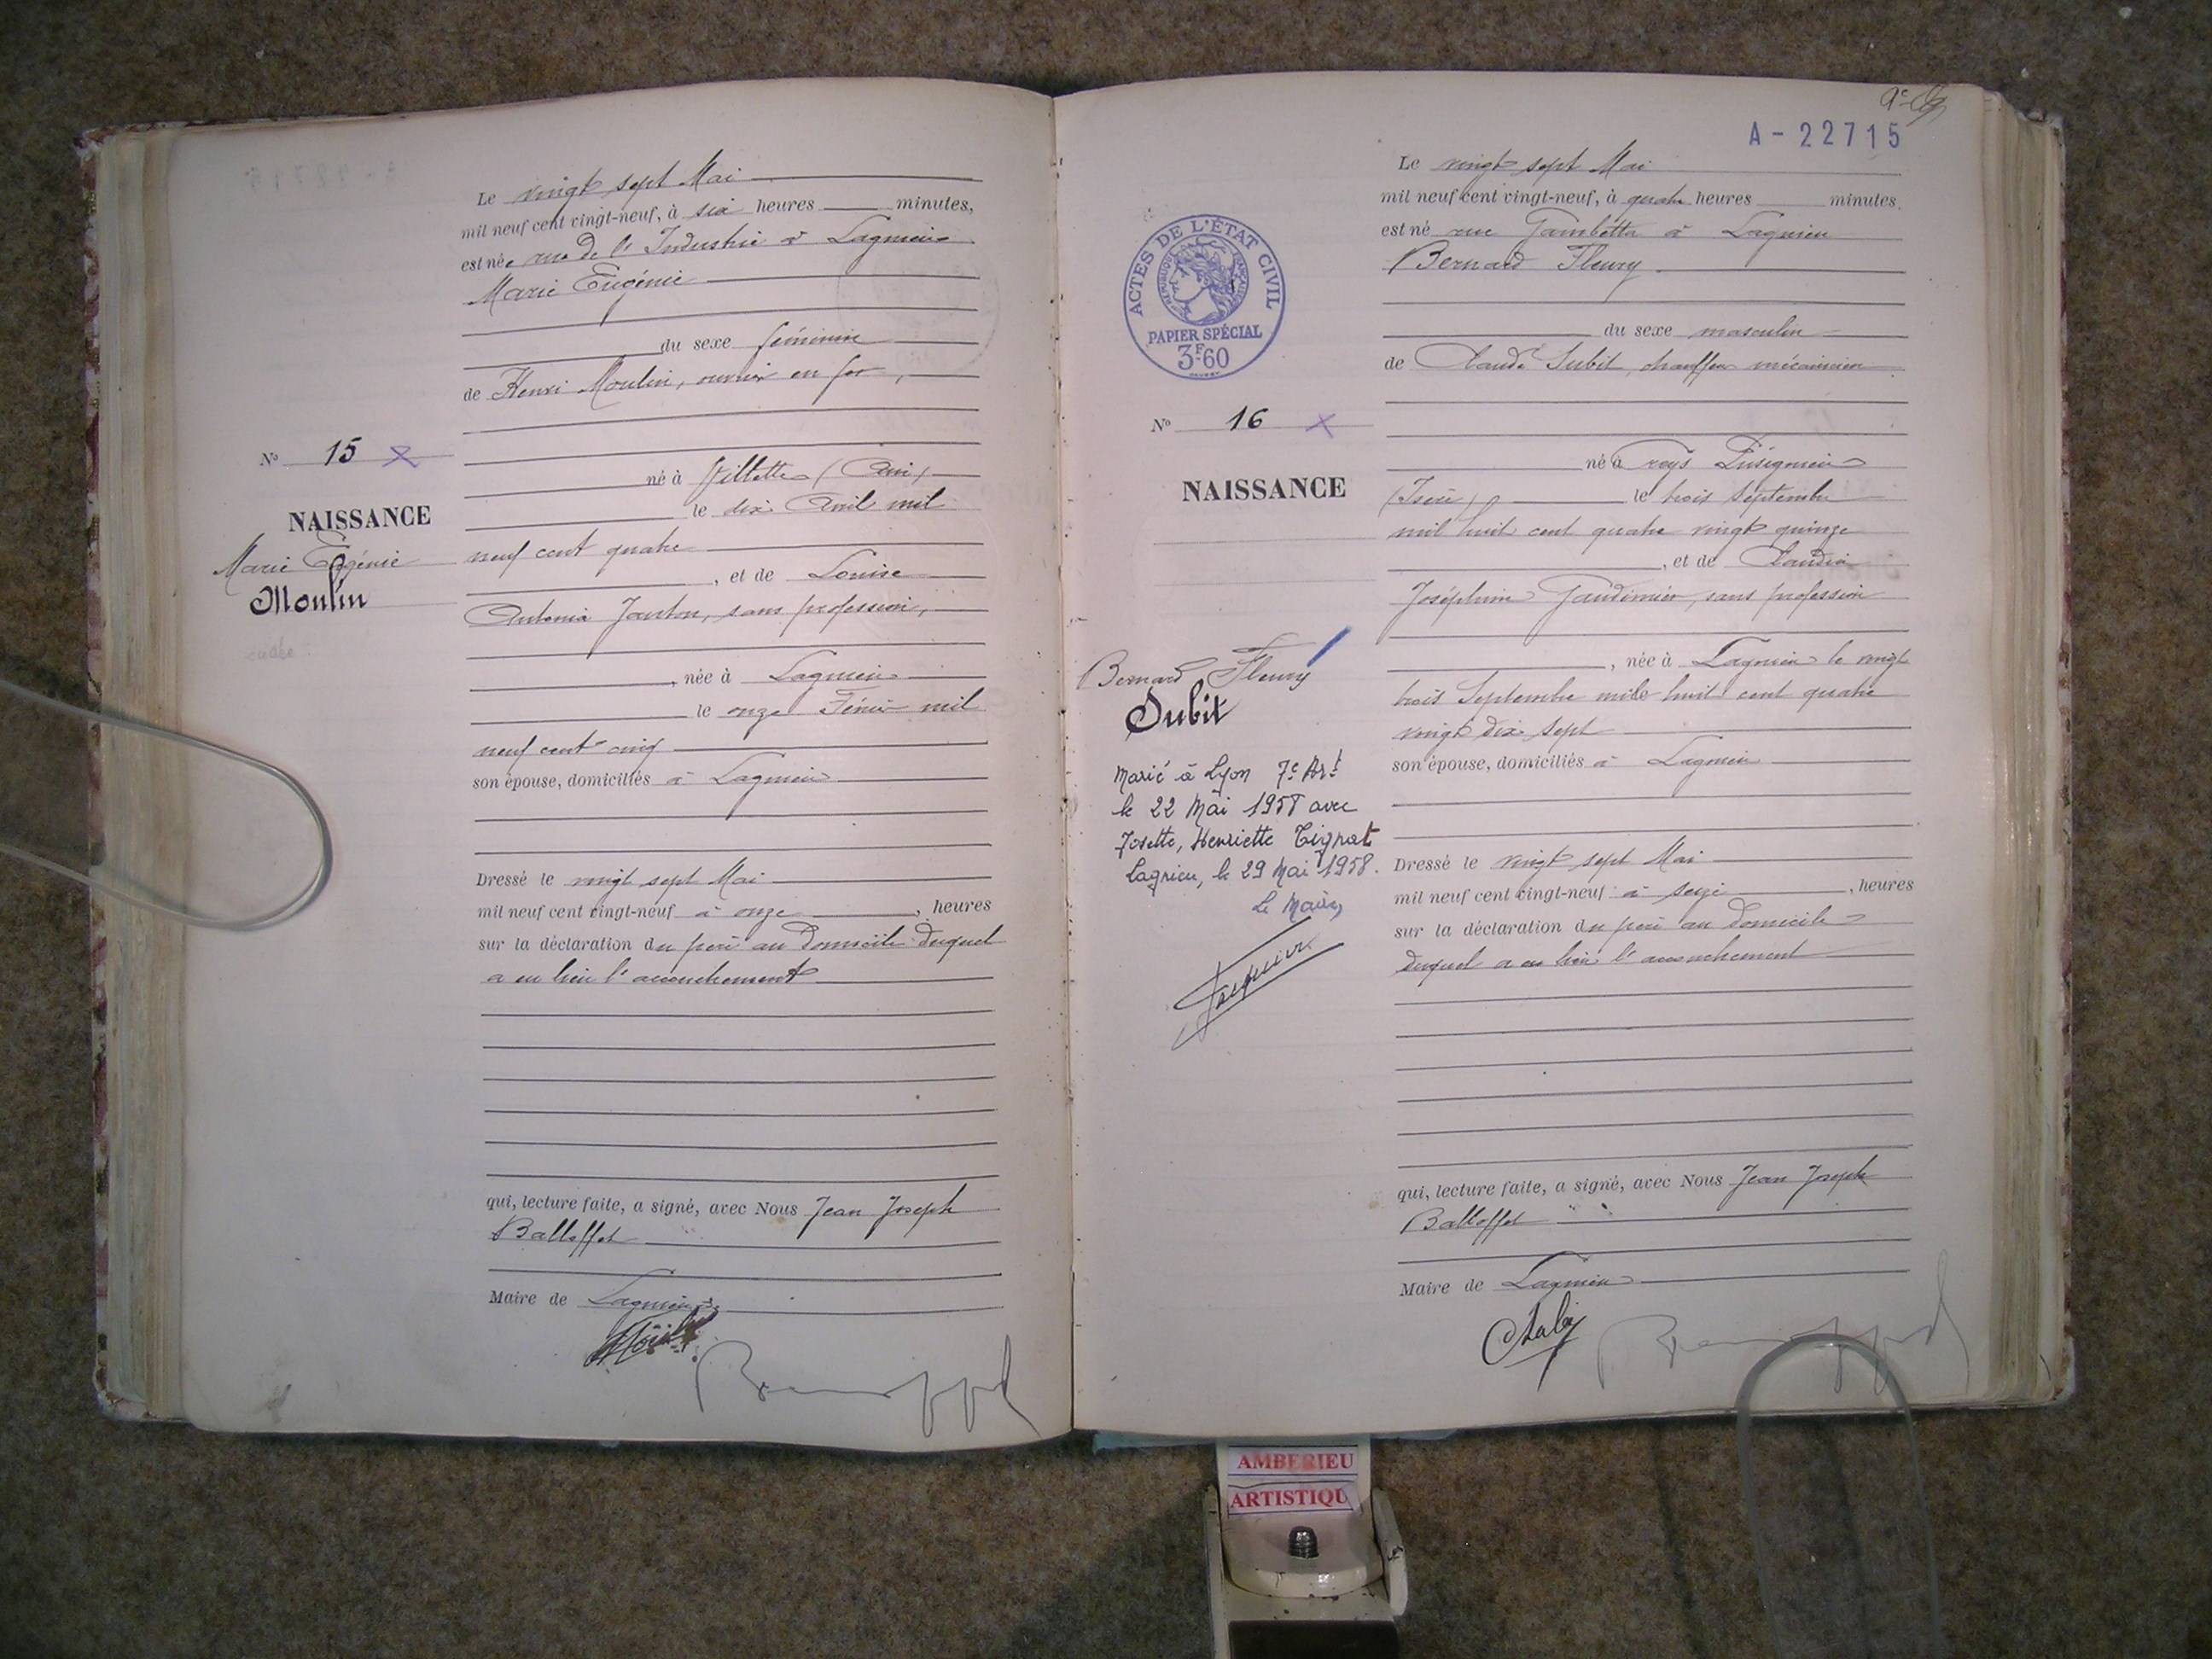 Le vingt sept Mai
mil neuf cent vingt-neuf, à six heures minutes,
est née rue de l'Industrie à Lagnieu
Marie Eugénie
du sexe féminin
de Henri Moulin, ouvrier en fer,
né à Villette (Ain)
le dix Avril mil
neuf cent quatre
, et de Louise
Antonia Janton, sans profession,
, née à Lagnieu
le onze Février mil
neuf cent cinq
son épouse, domiciliés à Lagnieu
Dressé le vingt sept Mai
mil neuf cent vingt-neuf à onze , heures
sur la déclaration du père au domicile duquel
a eu lieu l'accouchement
qui, lecture faite, a signé, avec Nous Jean Joseph
Balloffet
Maire de Lagnieu
No 15
NAISSANCE
Marie Eugénie
Moulin
A-22715
Le vingt sept Mai
mil neuf cent vingt-neuf, à quatre heures minutes
est né rue Gambetta à Lagnieu
Bernard Fleury
du sexe masculin
de Claude Subit, chauffeur mécanicien
né à Creys Pusignieu
(Isère) le trois Septembre
mil huit cent quatre vingt quinze
, et de Claudia
Joséphine Gaudinier, sans profession
, née à Lagnieu le vingt
trois Septembre mil huit cent quatre
vingt dix sept
son épouse, domiciliés à Lagnieu
Dressé le vingt sept Mai
mil neuf cent vingt-neuf à seize , heures
sur la déclaration du père au domicile
duquel a eu lieu l'accouchement
qui, lecture faite, a signé, avec Nous Jean Joseph
Balloffet
Maire de Lagnieu
ACTES DE L'ÉTAT CIVIL
RÉPUBLIQUE FRANÇAISE
PAPIER SPÉCIAL
3F60
No 16
NAISSANCE
Bernard Fleury
Subit
Marié à Lyon 7e Art
le 22 Mai 1958 avec
Josette, Henriette Tignat
Lagnieu, le 29 Mai 1958.
Le Maire,
AMBERIEU
ARTISTIQU